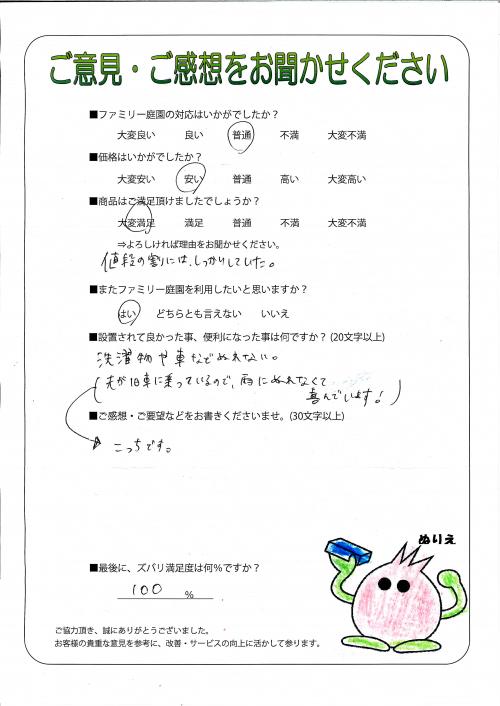 ご意見・ご感想をお聞かせください
■ファミリー庭園の対応はいかがでしたか？
大変良い 良い 普通 不満 大変不満
■価格はいかがでしたか？
大変安い 安い 普通 高い 大変高い
■商品はご満足頂けましたでしょうか？
大変満足 満足 普通 不満 大変不満
⇒よろしければ理由をお聞かせください。
値段の割には、しっかりしていた。
■またファミリー庭園を利用したいと思いますか？
はい どちらとも言えない いいえ
■設置されて良かった事、便利になった事は何ですか？(20文字以上)
洗濯物や車などぬれない。
(夫が旧車に乗っているので、雨にぬれなくて
喜んでいます！)
■ご感想・ご要望などをお書きくださいませ。(30文字以上)
こっちです。
ぬりえ
■最後に、ズバリ満足度は何％ですか？
100 ％
ご協力頂き、誠にありがとうございました。
お客様の貴重な意見を参考に、改善・サービスの向上に活かして参ります。